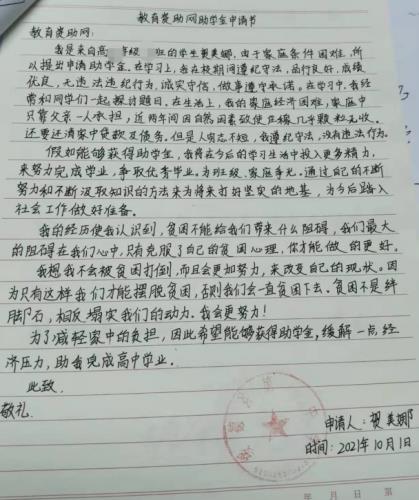 教育资助网助学金申请书
教育资助网:
我是来自高 年级 班的学生贺美娜,由于家庭条件困难,所
以提出申请助学金。在学习上,我在校期间遵纪守法,品行良好,成绩
优良,无违法违纪行为,诚实守信,做事遵守承诺。在学习中,我经
常和同学们一起探讨题目。在生活上,我的家庭经济困难,家庭中
只靠父亲一人承担,近两年间因自然因素致使庄稼几乎颗粒无收。
还要还清家中贷款及债务。但是人穷志不短,我遵纪守法,没有违法行为。
假如能够获得助学金,我将在今后的学习生活中投入更多精力,
来努力完成学业,争取优秀毕业。为班级、家庭争光。通过自己的不断
努力和不断汲取知识的方法来为将来打好坚实的地基,为今后踏入
社会工作做好准备。
我的经历使我认识到,贫困不能给我们带来什么阻碍,我们最大
的阻碍在我们心中,只有克服了自己的贫困心理,你才能做的更好。
我想我不会被贫困打倒,而且会更加努力,来改变自己的现状。因
为只有这样我们才能摆脱贫困,否则我们会一直贫困下去。贫困不是绊
脚石,相反塌实我们的动力。我会更努力!
为了减轻家中的负担,因此希望能够获得助学金,缓解一点经
济压力,助我完成高中学业。
此致
敬礼
申请人:贺美娜
时间:2021年10月1日
年 月 日 第